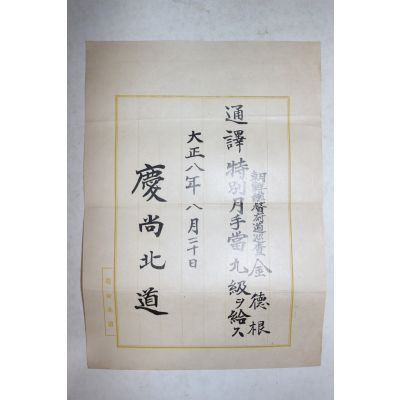 朝鮮總督府道巡査 金德根
通譯特別月手當九級ヲ給ス
大正八年八月二十日
慶尚北道
慶尚北道